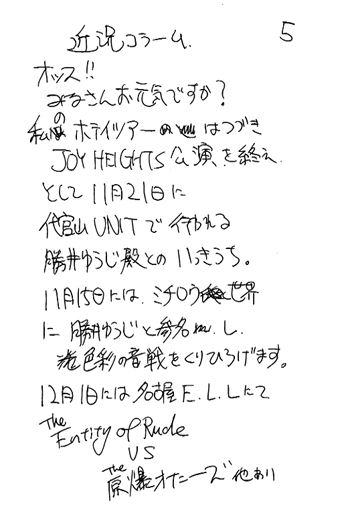 近況コラーム. 5
オッス!!
みなさんお元気ですか?
私のホテイツアーはつづき
JOY HEIGHTS公演を終え.
そして11月21日に
代官山UNITで行われる
勝井ゆうじ殿との いっきうち。
11月15日には ミチロウ世界
に 勝井ゆうじと参名. し.
色彩の音戦をくりひろげます。
12月1日には名古屋E.L.Lにて
The Entity of Rude
VS
The 原爆オナニーズ 他あり